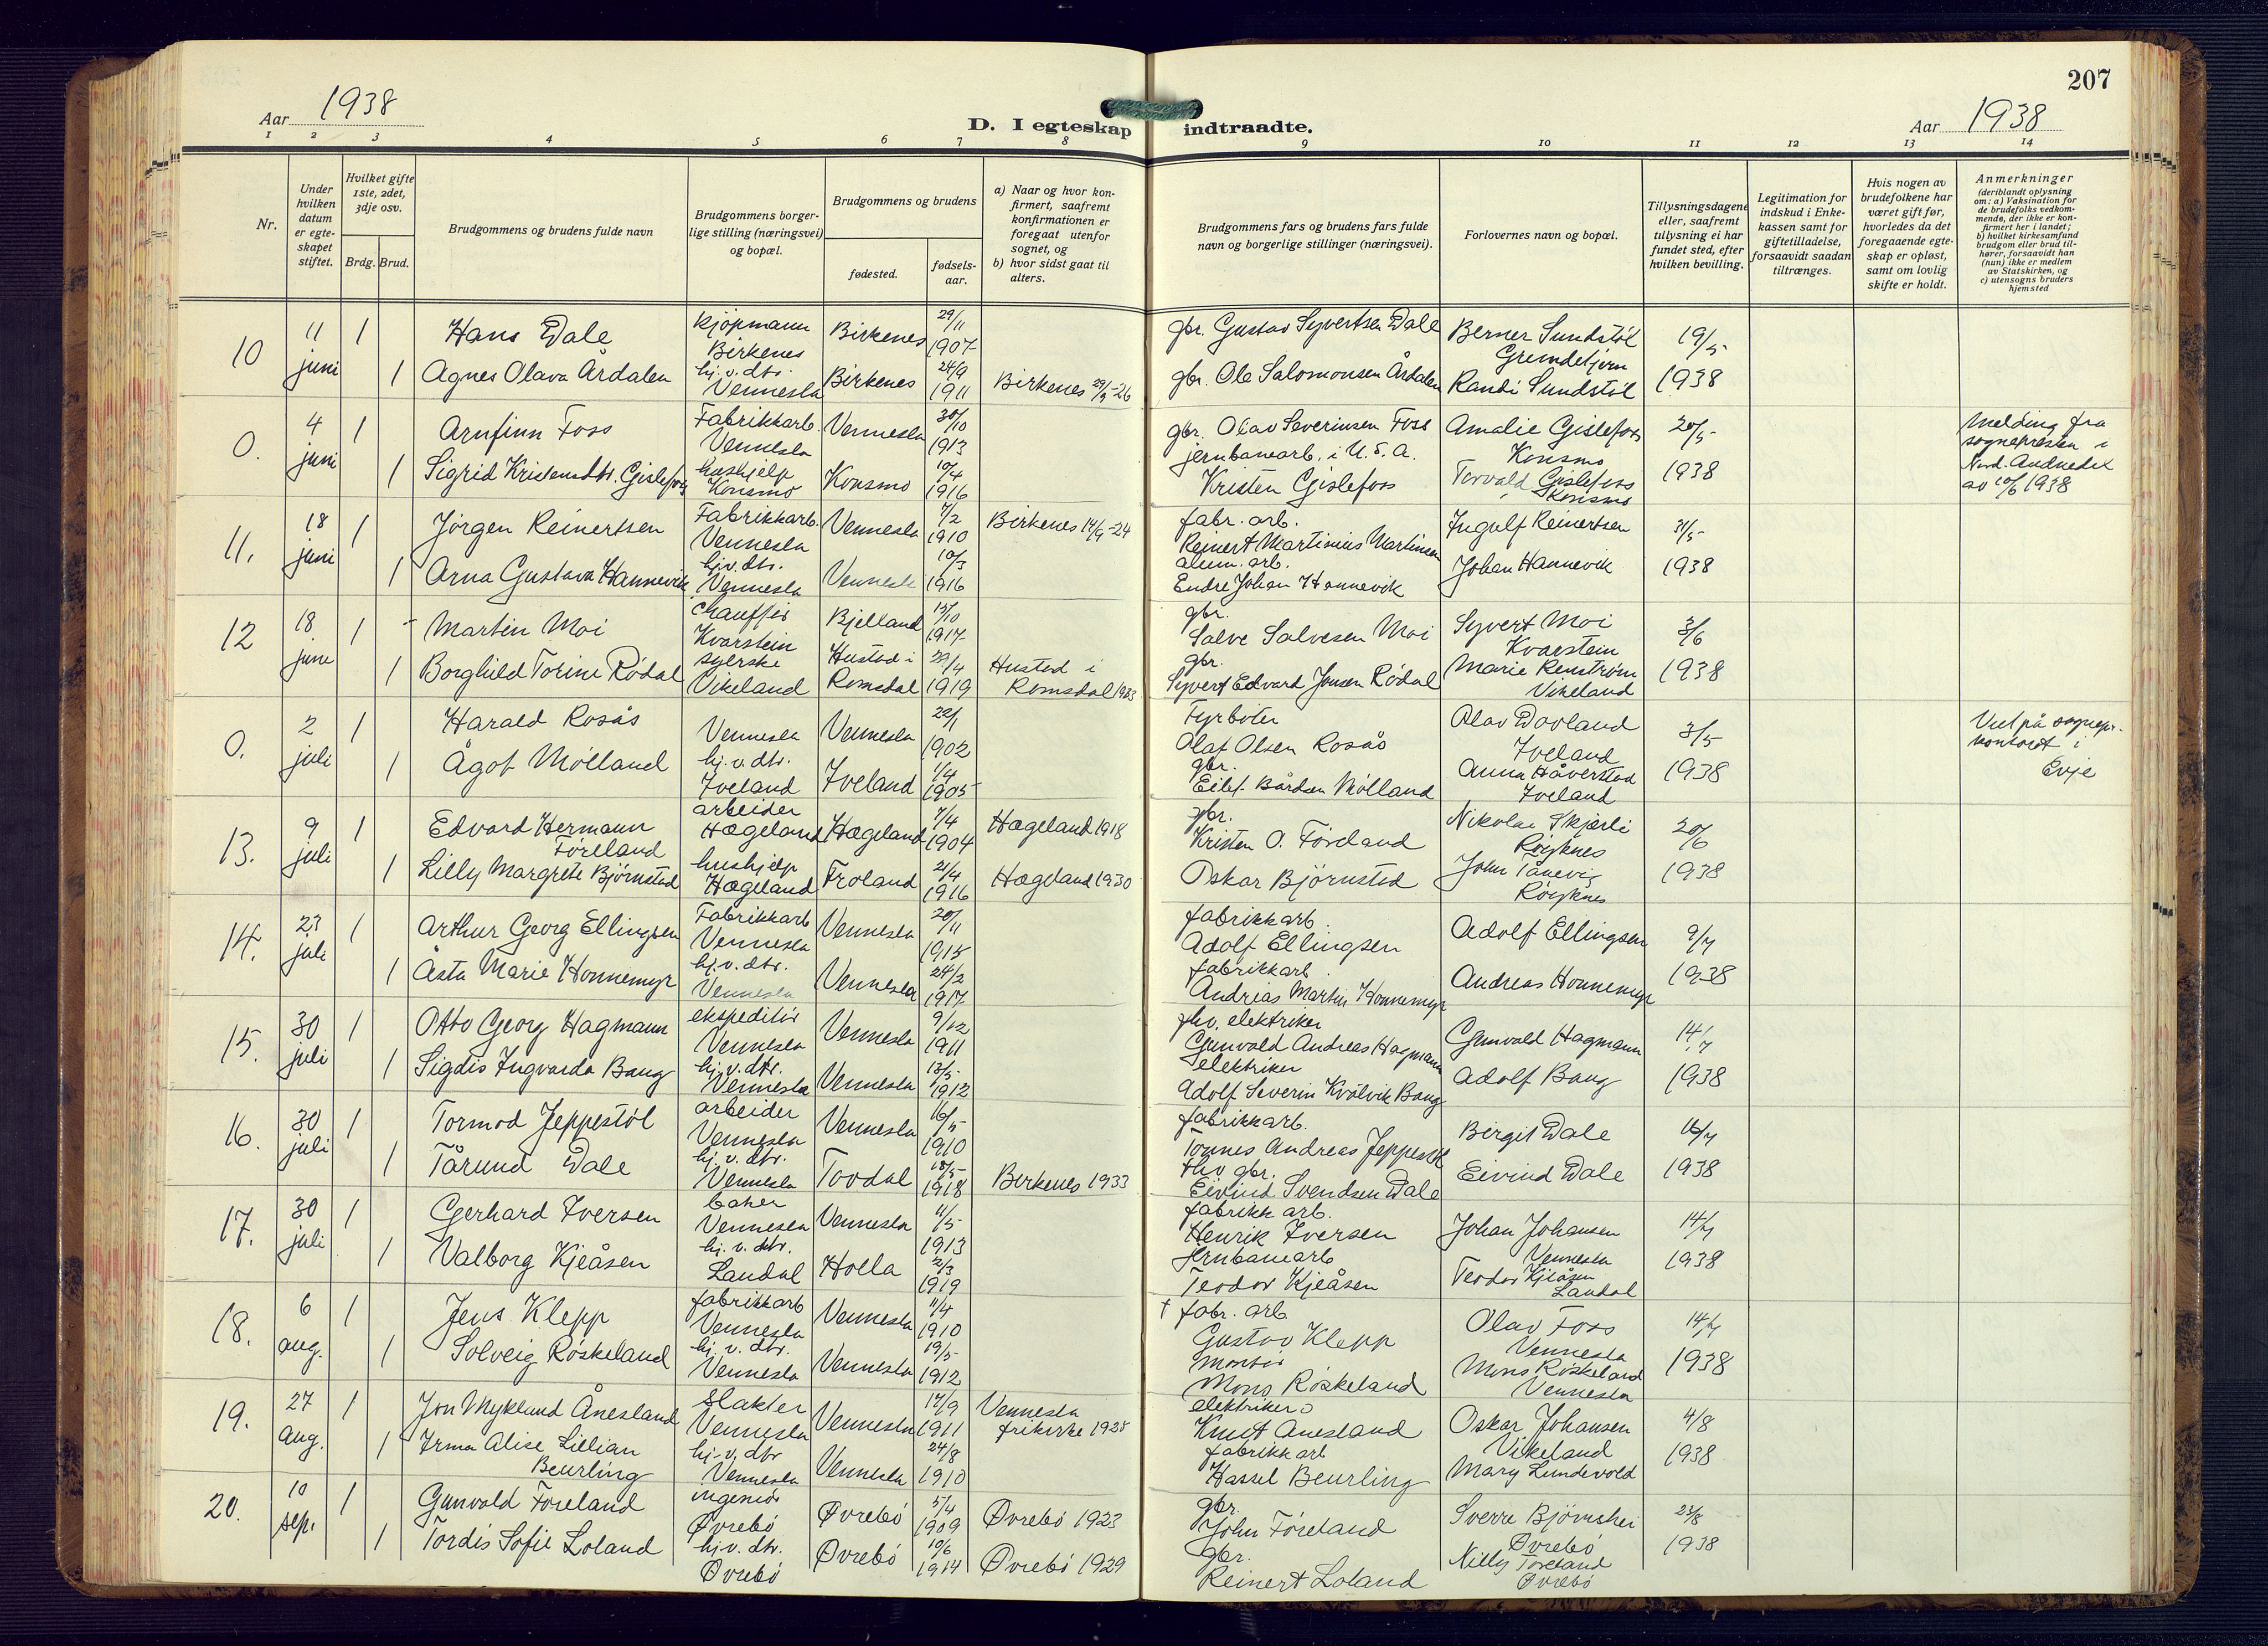 207
Aar 1938
D. I egteskap indtraadte.
Aar 1938
1 2 3 4 5 6 7 8 9 10 11 12 13 14
Nr.
Under hvilken datum er egte- skapet stiftet.
Hvilket gifte 1ste, 2det, 3dje osv.
Brdg. Brud.
Brudgommens og brudens fulde navn
Brudgommens borger- lige stilling (næringsvei) og bopæl.
Brudgommens og brudens
fødested.
fødsels- aar.
a) Naar og hvor kon- firmert, saafremt konfirmationen er foregaat utenfor sognet, og
b) hvor sidst gaat til alters.
Brudgommens fars og brudens fars fulde navn og borgerlige stillinger (næringsvei).
Forlovernes navn og bopæl.
Tillysningsdagene eller, saafremt tillysning ei har fundet sted, efter hvilken bevilling.
Legitimation for indskud i Enke- kassen samt for giftetilladelse, forsaavidt saadan tiltrænges.
Hvis nogen av brudefolkene har været gift før, hvorledes da det foregaaende egte- skap er opløst, samt om lovlig skifte er holdt.
Anmerkninger
(deriblandt oplysning om: a) Vaksination for de brudefolks vedkom- mende, der ikke er kon- firmert her i landet; b) hvilket kirkesamfund brudgom eller brud til- hører, forsaavidt han (hun) ikke er medlem av Statskirken, og c) utensogns bruders hjemsted
10 11 juni 1 Hans Dale kjøpmann Birkenes Birkenes 29/11 1907 gbr. Gustav Syvertsen Dale Berner Sundstøl Gremdetjern 19/5
1 Agnes Olava Årdalen hj. v. dtr. Vennesla Birkenes 24/9 1911 Birkenes 29/9-26 gbr. Ole Salomonsen Årdalen Randi Sundstøl 1938
0. 4 juni 1 Arnfinn Foss Fabrikkarb. Vennesla Vennesla 30/10 1913 gbr. Olav Severinsen Foss jernbanearb. i U.S.A. Amalie Gislefoss Konsmo 20/5
1 Sigrid Kristensdtr. Gislefoss hushjelp Konsmo Konsmo 10/4 1916 Kristen Gislefoss Torvald Gislefoss Konsmo 1938
Melding fra sognepresten i Nord. Audnedal av 10/6 1938
11. 18 juni 1 Jørgen Reinertsen Fabrikkarb. Vennesla Vennesla 7/2 1910 Birkenes 14/9-24 fabr. arb. Reinert Martinius Martinsen Ingolf Reinertsen 31/5
1 Arna Gustava Hannevik hj.v. dtr. Vennesla Vennesla 10/3 1916 alum. arb. Endre Johan Hannevik Johan Hannevik 1938
12 18 june 1 Martin Moi chauffør Kvarstein Bjelland 15/10 1917 gbr. Salve Salvesen Moi Syvert Moi Kvarstein 3/6
1 Borghild Torine Rødal syerske Vikeland Hustad i Romsdal 29/4 1919 Hustad i Romsdal 1933 gbr. Syvert Edvard Jonsen Rødal Marie Renstrøm Vikeland 1938
0. 2 juli 1 Harald Rosås Vennesla Vennesla 22/1 1902 Fyrbøter Olaf Olsen Rosås Olav Dovland Iveland 3/5
1 Ågot Mölland hj. v. dtr. Iveland Iveland 1/4 1905 gbr. Eilef Bårdsen Mölland Anna Håverstad Iveland 1938
Viet på sognepr. kontoret i Evje
13. 9 juli 1 Edvard Hermann Förelland arbeider Hægeland Hægeland 7/4 1904 Hægeland 1918 gbr. Kristen O. Föreland Nikolai Skjerli Röyknes 20/6
1 Lilly Margrete Björnstad hushjelp Hægeland Froland 21/4 1916 Hægeland 1930 Oskar Björnstad John Tånevig Röyknes 1938
14. 23 juli 1 Arthur Georg Ellingsen Fabrikkarb Vennesla Vennesla 20/11 1915 fabrikkarb. Adolf Ellingsen Adolf Ellingsen 9/7
1 Åsta Marie Honnemyr hj. v. dtr. Vennesla Vennesla 24/2 1917 fabrikkarb. Andreas Martin Honnemyr Andreas Honnemyr 1938
15. 30 juli 1 Otto Georg Hagmann ekspeditör Vennesla Vennesla 9/12 1911 fhv. elektriker Gunvald Andreas Hagmann Gunvald Hagmann 14/7
1 Sigdis Ingvarda Bang hj. v. dtr. Vennesla Vennesla 13/5 1912 elektriker Adolf Severin Kvålvik Bang Adolf Bang 1938
16. 30 juli 1 Tormod Jeppestöl arbeider Vennesla Vennesla 16/5 1910 fabrikkarb. Tonnes Andreas Jeppestöl Birgit Dale 16/7
1 Tårund Dale hj. v. dtr. Vennesla Tovdal 18/5 1918 Birkenes 1933 fhv gbr. Eivind Svendsen Dale Eivind Dale 1938
17. 30 juli 1 Gerhard Iversen baker Vennesla Vennesla 11/5 1913 fabrikk arb. Henrik Iversen Johan Johansen Vennesla 14/7
1 Valborg Kjeåsen hj. v. dtr. Laudal Holla 2/3 1919 Jernbanearb Teodor Kjeåsen Teodor Kjeåsen Laudal 1938
18. 6 aug. 1 Jens Klepp fabrikkarb Vennesla Vennesla 11/4 1910 † fabr. arb Gustav Klepp Olav Foss Vennesla 14/7
1 Solveig Röskeland hj. v. dtr. Vennesla Vennesla 19/5 1912 montör Mons Röskeland Mons Röskeland Vennesla 1938
19. 27 aug. 1 Jon Myklund Ånesland slakter Vennesla Vennesla 17/9 1911 Vennesla frikirke elektriker Knut Ånesland Oskar Johansen Vikeland 4/8
1 Irma Alise Lillian Beurling hj. v. dtr Vennesla Vennesla 24/8 1910 fabrikkarb Hassel Beurling Mary Lundevold 1938
20. 10 sep. 1 Gunvald Föreland ingeniör Øvrebö Øvrebö 5/4 1909 Øvrebö 1923 gbr. John Föreland Sverre Björnshei Øvrebö 23/8
1 Tordis Sofie Loland hj.v. dtr. Øvrebö Øvrebö 10/6 1914 Øvrebö 1929 gbr. Reinert Loland Nilly Föreland Øvrebö 1938